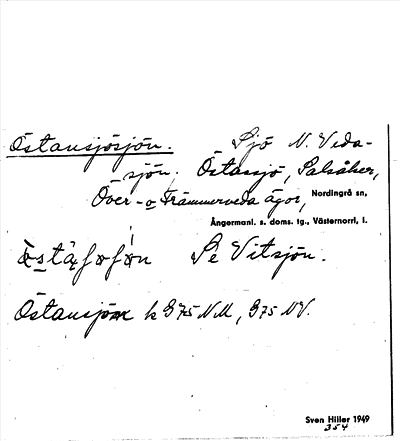 Östansjösjön. Sjö N. Veda-
sjön. Östansjö, Salsåker,
Över- o Främmerveda ägor, Nordingrå sn,
Ångermanl. s. doms. tg., Västernorrl. l.
Se Vitsjön.
Östansjön k 375 NM, 375 NV.
Sven Hiller 1949
354